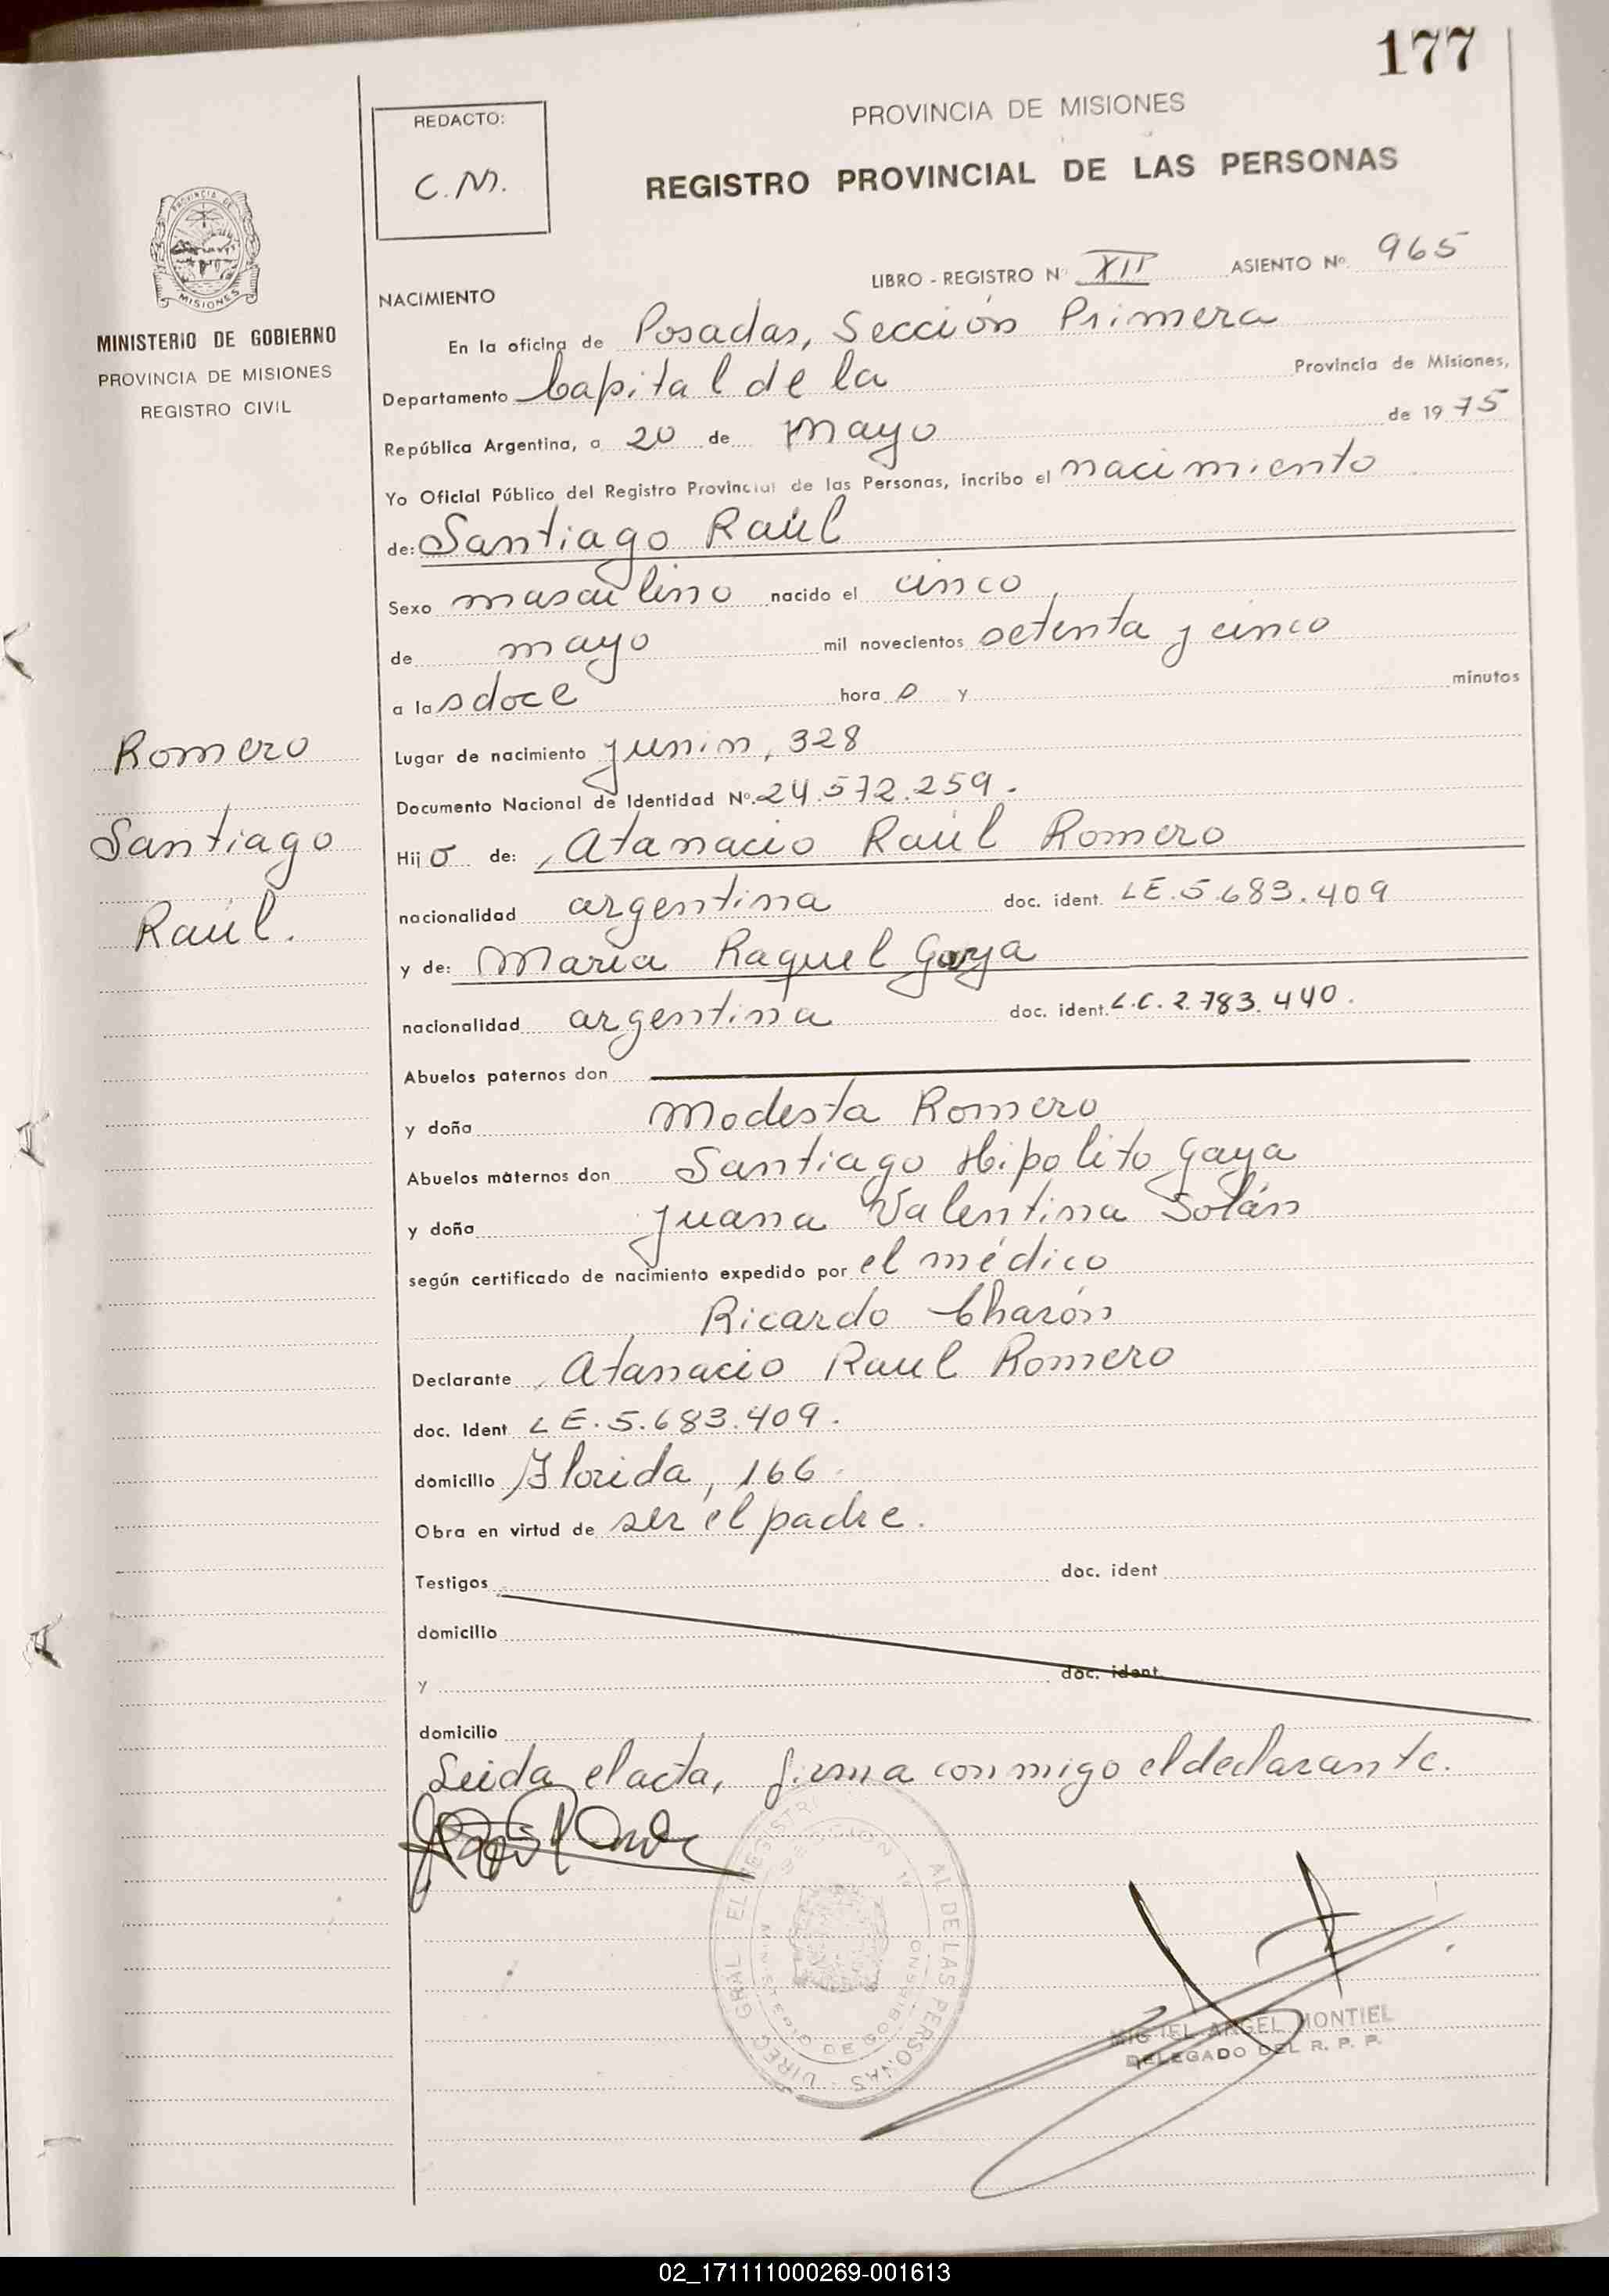 177
REDACTO:
C.M.
PROVINCIA DE MISIONES
REGISTRO PROVINCIAL DE LAS PERSONAS
PROVINCIA DE
MISIONES
MINISTERIO DE GOBIERNO
PROVINCIA DE MISIONES
REGISTRO CIVIL
LIBRO - REGISTRO Nº XII ASIENTO Nº 965
NACIMIENTO
En la oficina de Posadas, Sección Primera
Departamento Capital de la Provincia de Misiones,
República Argentina, a 20 de mayo de 1975
Yo Oficial Público del Registro Provincial de las Personas, incribo el nacimiento
de: Santiago Raúl
Sexo masculino nacido el cinco
de mayo mil novecientos setenta y cinco
a las doce hora s y minutos
Lugar de nacimiento Junin, 328
Documento Nacional de Identidad Nº. 24.572.259.
Hijo de: Atanacio Raúl Romero
nacionalidad argentina doc. ident. LE. 5.683.409
y de: María Raquel Gaya
nacionalidad argentina doc. ident. L.C. 2.783.440.
Abuelos paternos don
y doña Modesta Romero
Abuelos maternos don Santiago Hipolito Gaya
y doña Juana Valentina Solán
según certificado de nacimiento expedido por el médico
Ricardo Charón
Declarante Atanacio Raul Romero
doc. Ident LE. 5.683.409.
domicilio Florida, 166.
Obra en virtud de ser el padre.
Testigos doc. ident
domicilio
y doc. ident.
domicilio
Leida el acta, firma conmigo el declarante.
Romero
Santiago
Raúl.
MIGUEL ANGEL MONTIEL
DELEGADO DEL R. P. P.
02_171111000269-001613